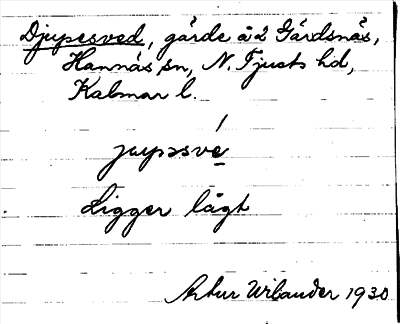 Djupesved, gärde å 2 Gärdsnäs,
Hannäs sn, N. Tjusts hd,
Kalmar l.
jupssvé
Ligger lågt
Artur Wilander 1930